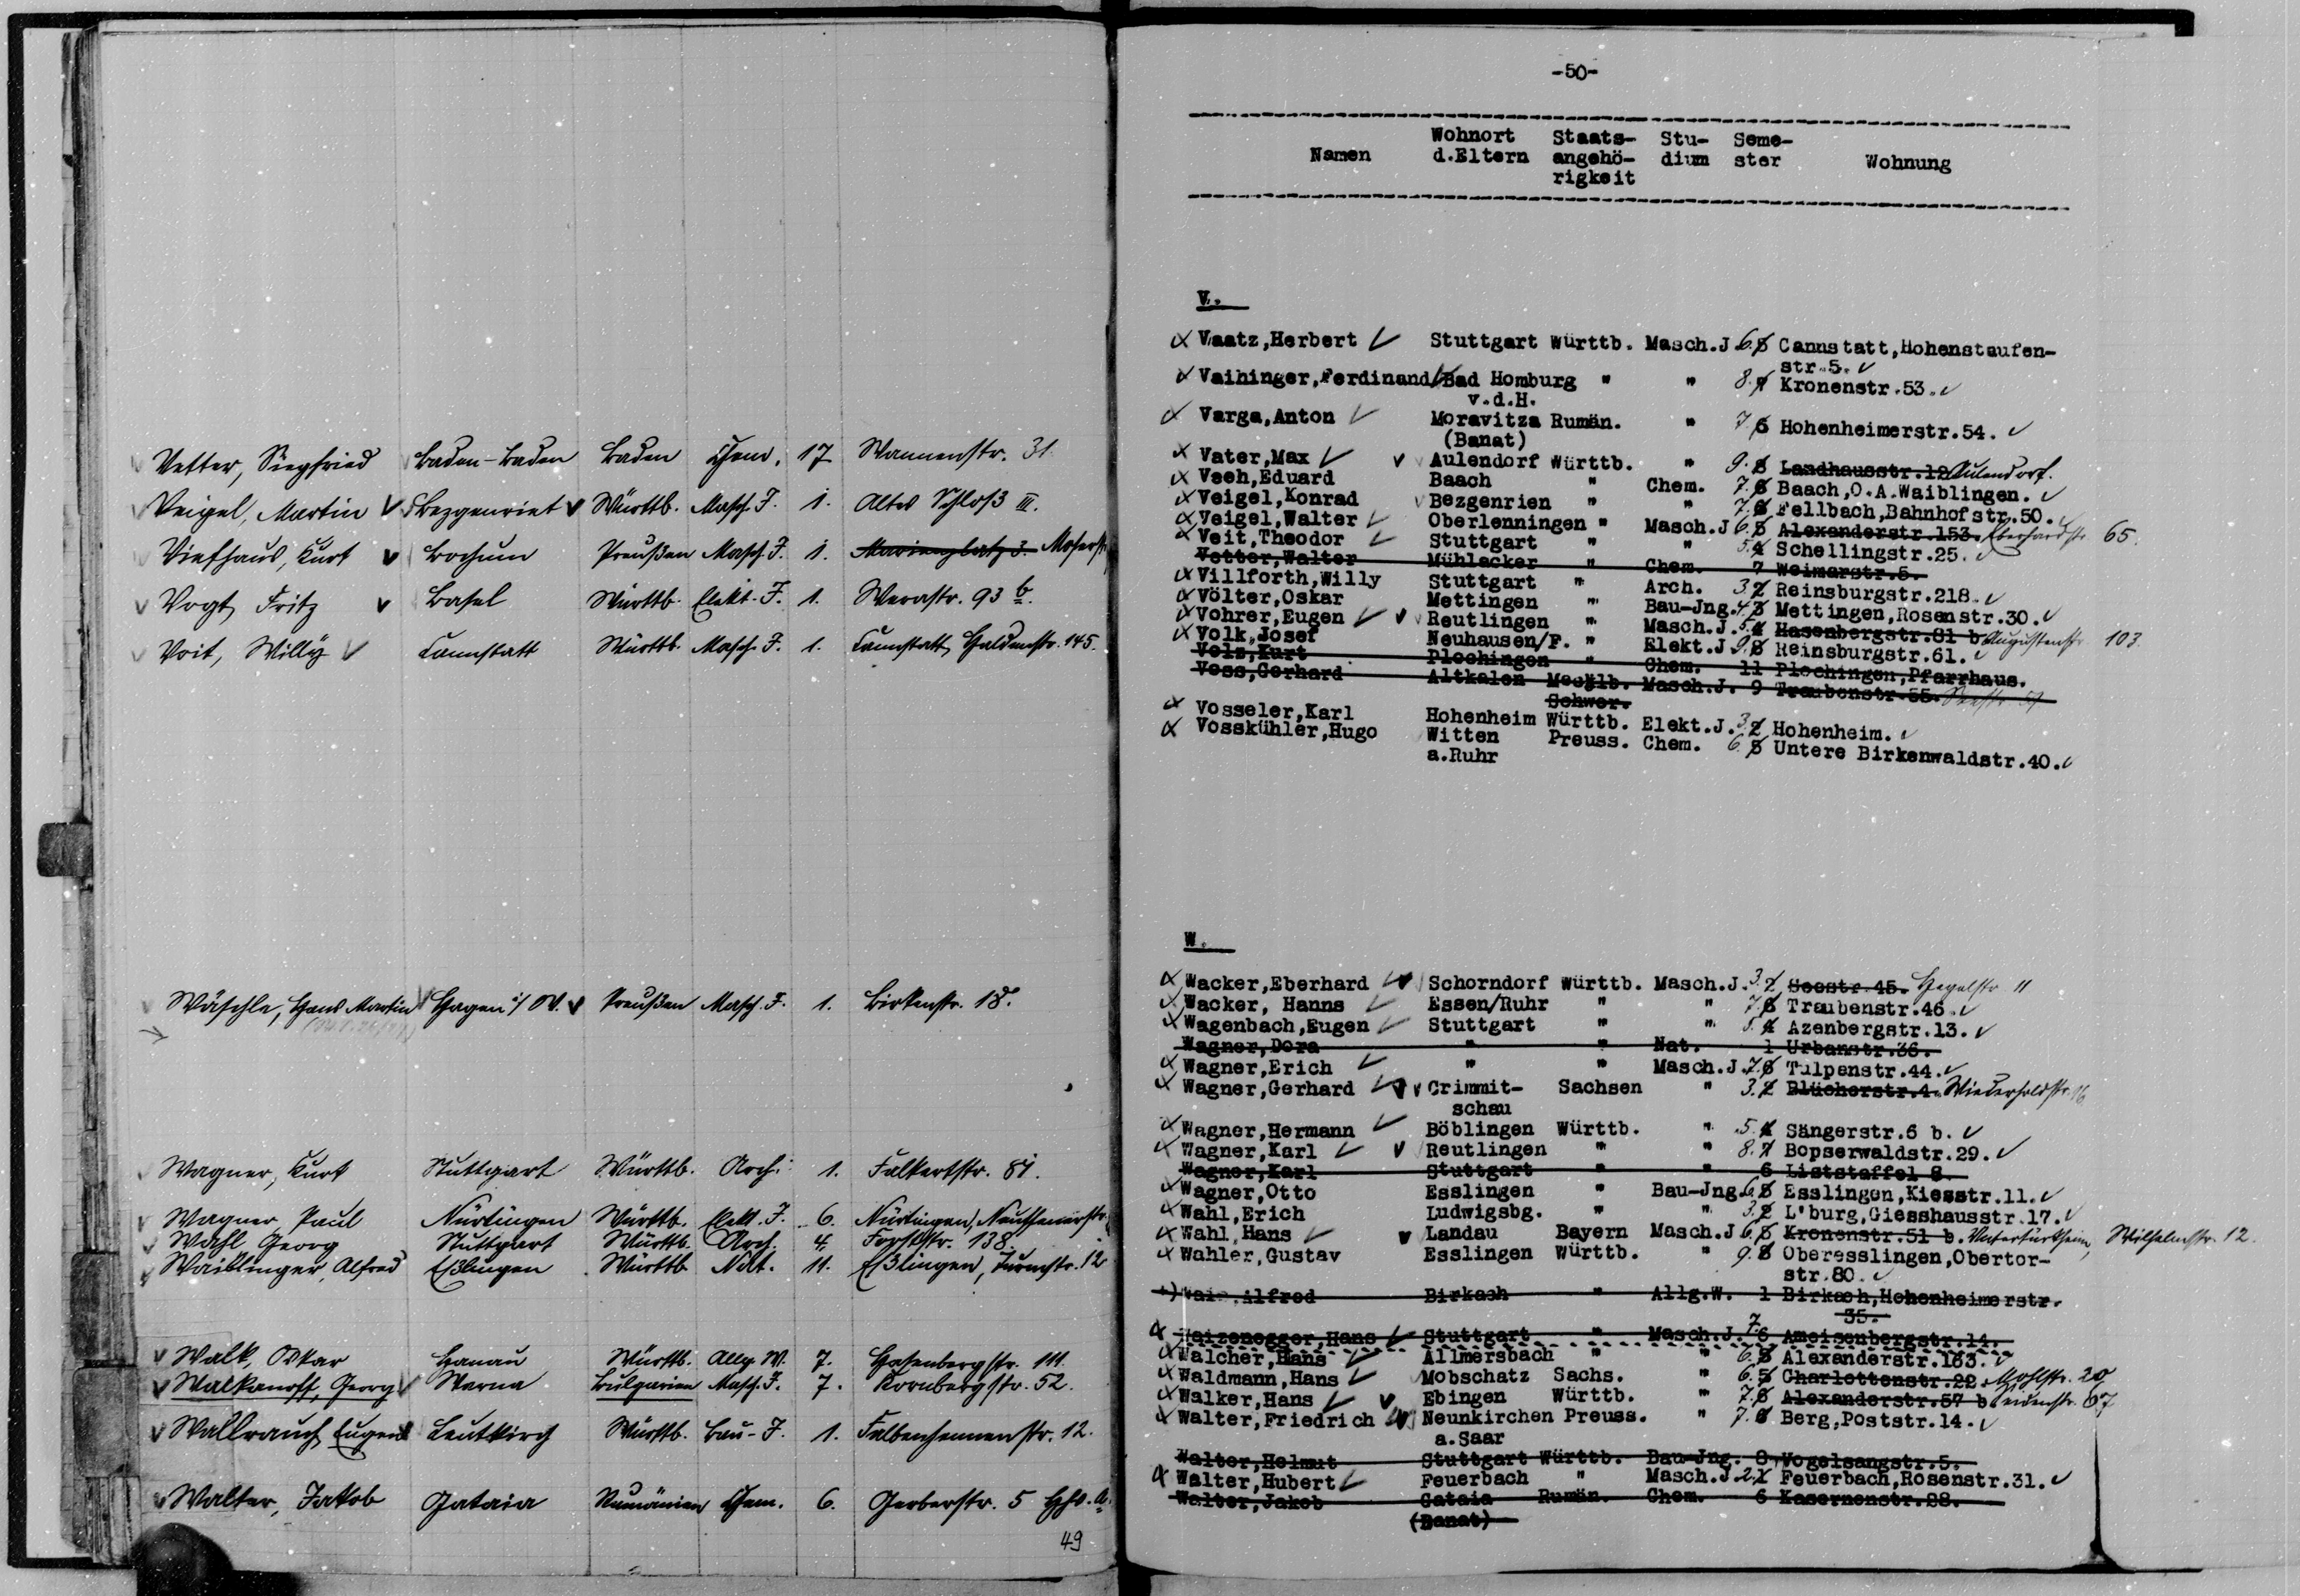 Vetter, Siegfried Baden-Baden Baden Chem. 17 Wannenstr. 31.
Veigel, Martin Bezgenriet Württb. Masch. I. 1. Altes Schloß III.
Viefhaus, Kurt Bochum Preußen Masch. I. 1. Marienplatz 3. Moserstr.
Vogt, Fritz Basel Württb. Elekt. I. 1. Werastr. 93 b.
Voit, Willy Cannstatt Württb. Masch. I. 1. Cannstatt, Haldenstr. 145.
Wäschle, Hans Martin Hagen i/W. Preußen Masch. I. 1. Birkenstr. 18.
Wagner, Kurt Stuttgart Württb. Arch. 1. Falkertstr. 81.
Wagner, Paul Nürtingen Württb. Elekt. I. 6. Nürtingen, Neuffenerstr.
Wahl, Georg Stuttgart Württb. Arch. 4. Forststr. 138.
Waiblinger, Alfred Eßlingen Württb. Nat. 11. Eßlingen, Turmstr. 12
Walk, Oskar Hanau Württb. Allg. W. 7. Hasenbergstr. 111.
Walkanoff, Georg Warna Bulgarien Masch. I. 7. Kornbergstr. 52.
Wallrauch, Eugen Leutkirch Württb. Bau-I. 1. Falbenhennenstr. 12.
Walter, Jakob Gataia Rumänien Chem. 6. Gerberstr. 5
49
-50-
Namen Wohnort d.Eltern Staats-angehö-rigkeit Stu-dium Seme-ster Wohnung
V.
Vaatz,Herbert Stuttgart Württb. Masch.J. 6. 5 Cannstatt,Hohenstaufen-
str.5.
Vaihinger,Ferdinand Bad Homburg " " 8. 7 Kronenstr.53.
v.d.H.
Varga,Anton Moravitza Rumän. " 7 6 Hohenheimerstr.54.
(Banat)
Vater,Max Aulendorf Württb. " 9. 8 Landhausstr.12 Aulendorf.
Veeh,Eduard Baach " Chem. 7. 6 Baach,O.A.Waiblingen.
Veigel,Konrad Bezgenrien " " 7. 6 Fellbach,Bahnhofstr.50.
Veigel,Walter Oberlenningen " Masch.J 6. 5 Alexanderstr.153. Eberhardstr. 65.
Veit,Theodor Stuttgart " " 5. 4 Schellingstr.25.
Vetter,Walter Mühlacker " Chem. 7 Weimarstr.5.
Villforth,Willy Stuttgart " Arch. 3. 2 Reinsburgstr.218.
Völter,Oskar Mettingen " Bau-Jng. 4. 3 Mettingen,Rosenstr.30.
Vohrer,Eugen Reutlingen " Masch.J. 5. 4 Hasenbergstr.81 b Augustenstr. 103.
Volk,Josef Neuhausen/F. " Elekt.J. 9. 8 Reinsburgstr.61.
Volz,Kurt Plochingen " Chem. 11 Plochingen,Pfarrhaus.
Voss,Gerhard Altkalen Mecklb. Masch.J. 9 Traubenstr.55.
Schwer.
Vosseler,Karl Hohenheim Württb. Elekt.J. 3. 2 Hohenheim.
Vosskühler,Hugo Witten Preuss. Chem. 6. 5 Untere Birkenwaldstr.40.
a.Ruhr
W.
Wacker,Eberhard Schorndorf Württb. Masch.J. 3. 2 Seestr.45. Hegelstr. 11
Wacker, Hanns Essen/Ruhr " " 7. 6 Traubenstr.46.
Wagenbach,Eugen Stuttgart " " 5. 4 Azenbergstr.13.
Wagner,Dora " " Nat. 1 Urbanstr.36.
Wagner,Erich " " Masch.J. 7. 6 Tulpenstr.44.
Wagner,Gerhard Crimmit- Sachsen " 3. 2 Blücherstr.4. Wiederholdstr. 16
schau
Wagner,Hermann Böblingen Württb. " 5. 4 Sängerstr.6 b.
Wagner,Karl Reutlingen " " 8. 7 Bopserwaldstr.29.
Wagner,Karl Stuttgart " " 6 Liststaffel 8.
Wagner,Otto Esslingen " Bau-Jng. 6. 5 Esslingen,Kiesstr.11.
Wahl,Erich Ludwigsbg. " " 3. 2 L'burg,Giesshausstr.17.
Wahl,Hans Landau Bayern Masch.J 6. 5 Kronenstr.51 b. Untertürkheim, Wilhelmstr. 12.
Wahler,Gustav Esslingen Württb. " 9. 8 Oberesslingen,Obertor-
str.80.
Wais,Alfred Birkach " Allg.W. 1 Birkach,Hohenheimerstr.
35.
Waizenegger,Hans Stuttgart " Masch.J. 7. 6 Ameisenbergstr.14.
Walcher,Hans Allmersbach " " 6. 5 Alexanderstr.163.
Waldmann,Hans Mobschatz Sachs. " 6. 5 Charlottenstr.22. Mohlstr. 20
Walker,Hans Ebingen Württb. " 7. 6 Alexanderstr.57 b Seidenstr. 67
Walter,Friedrich Neunkirchen Preuss. " 7. 6 Berg,Poststr.14.
a.Saar
Walter,Helmut Stuttgart Württb. Bau-Jng. 8 Vogelsangstr.5.
Walter,Hubert Feuerbach " Masch.J. 2. 1 Feuerbach,Rosenstr.31.
Walter,Jakob Gataia Rumän. Chem. 6 Kasernenstr.28.
(Banat)